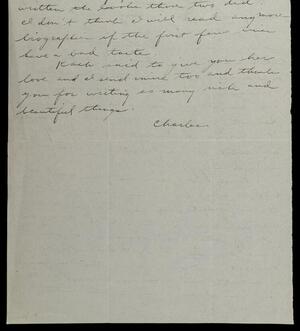 written the books those two did.
I don't think I will read any more
biographies if the first few
have a bad taste.
said to give you her
love and I send mine too and thank
you for writing so many rich and
beautiful things.
Charles.